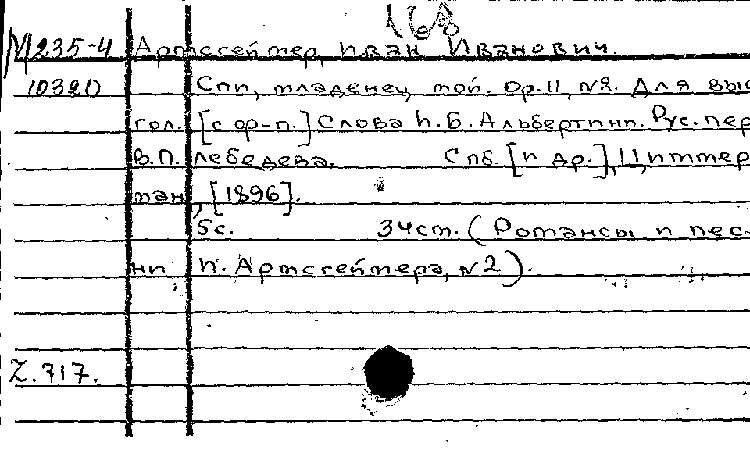 168
М235-4 Армсгеймер, Иван Иванович.
10320 Спи, младенец мой. Ор.11, №2. Для выс
гол. [с ф-п.] Слова П.Б. Альбертини. Рус. пер
В.П. Лебедева. Спб. [и др.], Циммер
ман, [1896].
5с. 34см. (Романсы и пес-
ни И. Армсгеймера, №2).
Z.717.